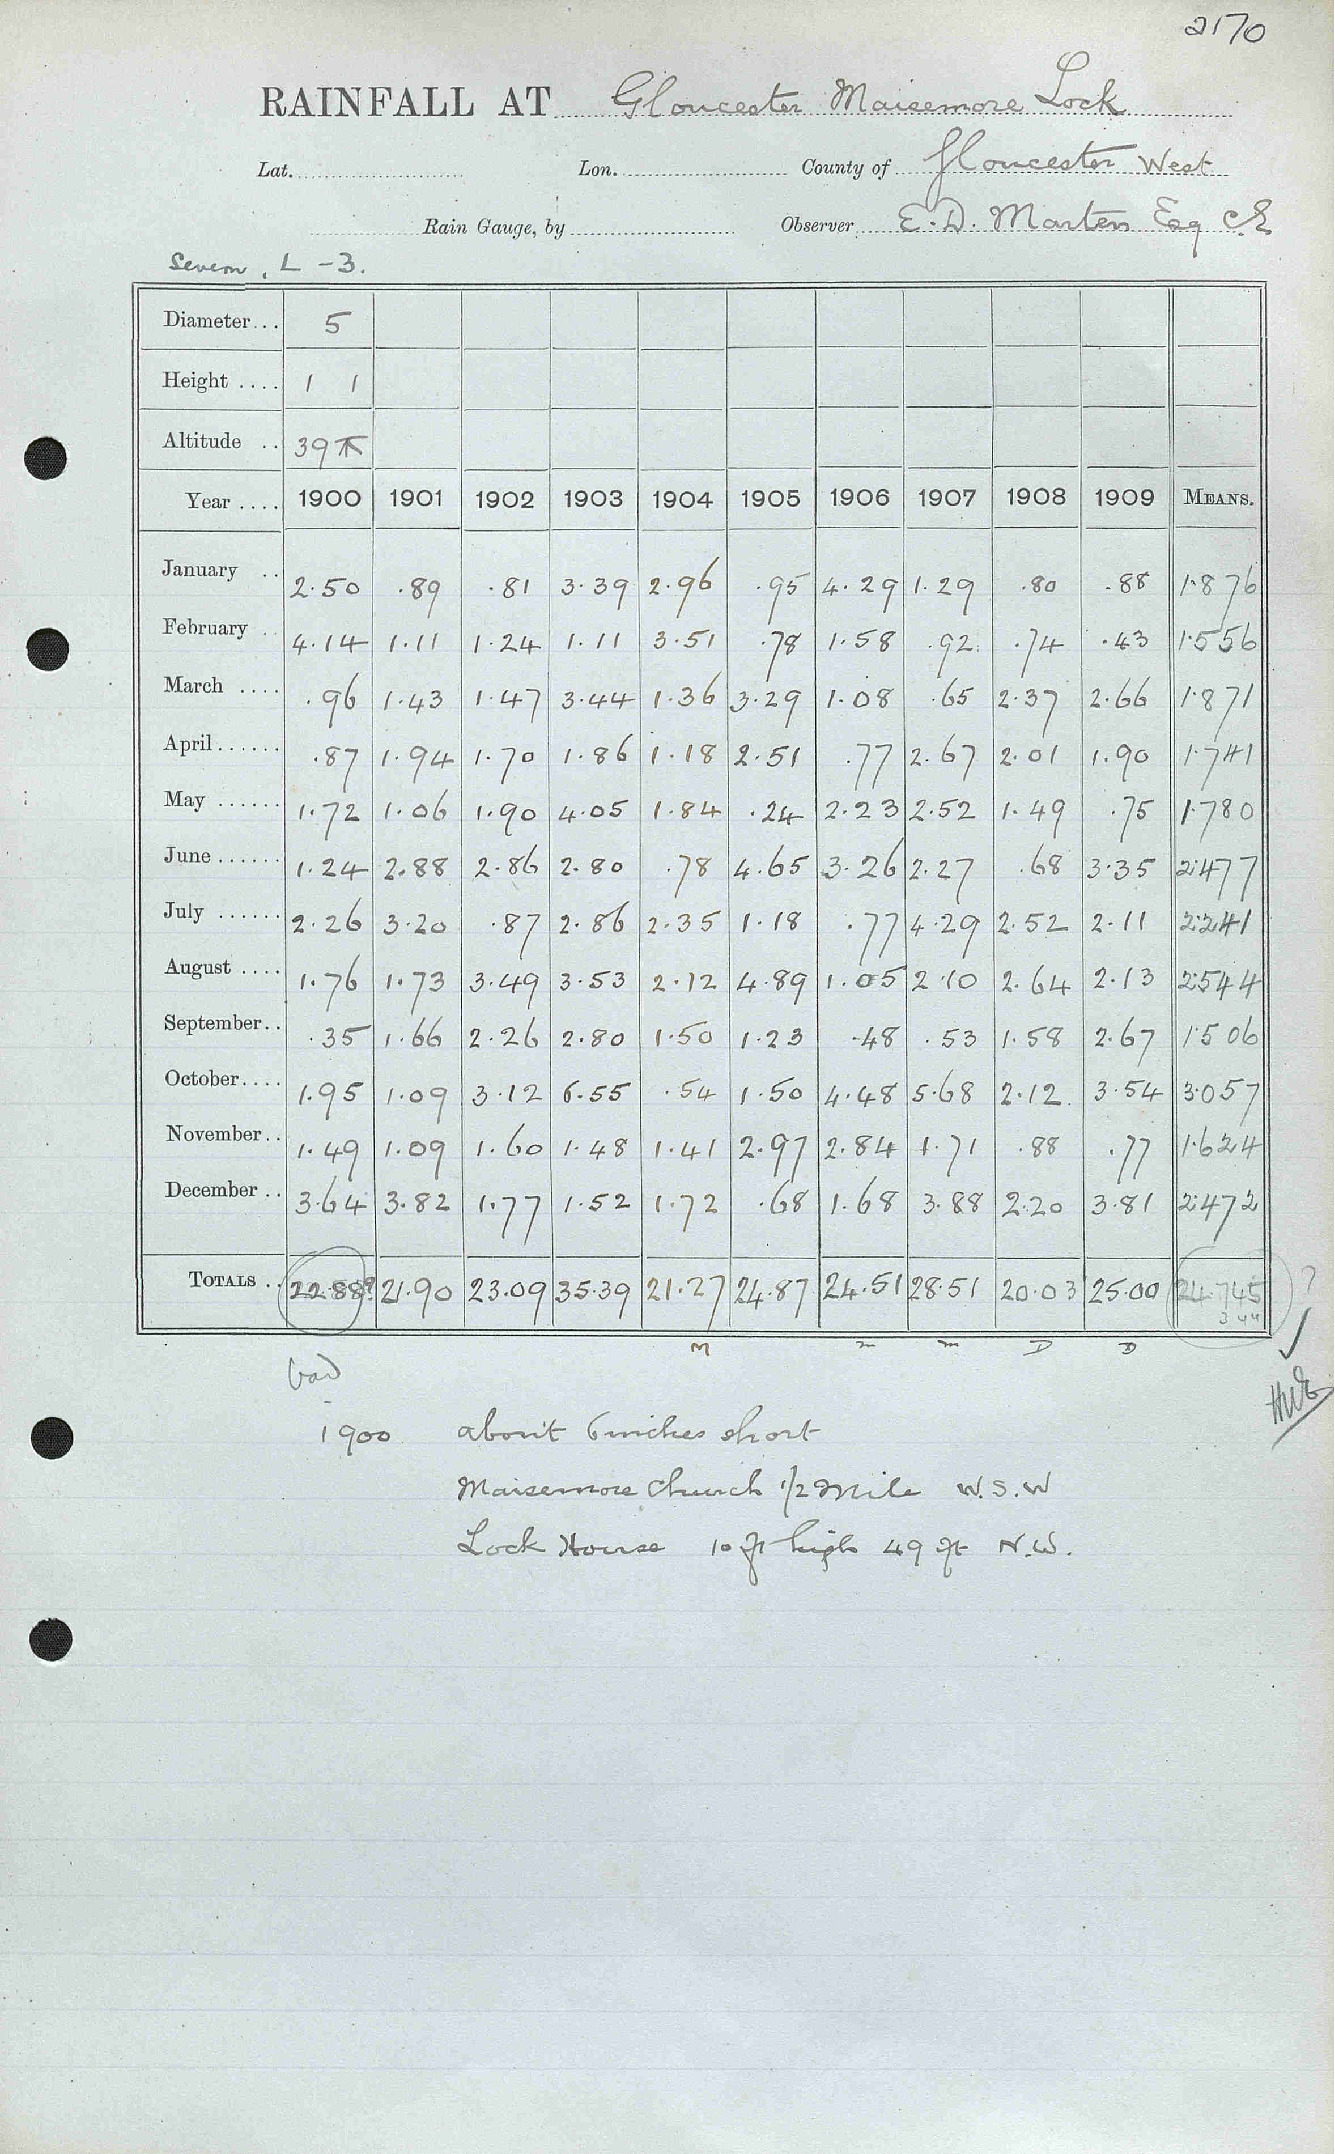 2170
RAINFALL AT Gloucester Maisemore Lock
Lat. Lon. County of Gloucester West
Rain Gauge, by Observer E. D. Marten Esq CE
Severn, L - 3.
Diameter... 5
Height .... 1 1
Altitude .. 39
Year .... 1900 1901 1902 1903 1904 1905 1906 1907 1908 1909 MEANS.
January .. 2.50 .89 .81 3.39 2.96 .95 4.29 1.29 .80 .88 1.876
February .. 4.14 1.11 1.24 1.11 3.51 .78 1.58 .92 .74 .43 1.556
March .... .96 1.43 1.47 3.44 1.36 3.29 1.08 .65 2.37 2.66 1.871
April...... .87 1.94 1.70 1.86 1.18 2.51 .77 2.67 2.01 1.90 1.741
May ...... 1.72 1.06 1.90 4.05 1.84 .24 2.23 2.52 1.49 .75 1.780
June...... 1.24 2.88 2.86 2.80 .78 4.65 3.26 2.27 .68 3.35 2.477
July ...... 2.26 3.20 .87 2.86 2.35 1.18 .77 4.29 2.52 2.11 2.241
August .... 1.76 1.73 3.49 3.53 2.12 4.89 1.05 2.10 2.64 2.13 2.544
September.. .35 1.66 2.26 2.80 1.50 1.23 .48 .53 1.58 2.67 1.506
October.... 1.95 1.09 3.12 6.55 .54 1.50 4.48 5.68 2.12 3.54 3.057
November.. 1.49 1.09 1.60 1.48 1.41 2.97 2.84 1.71 .88 .77 1.624
December .. 3.64 3.82 1.77 1.52 1.72 .68 1.68 3.88 2.20 3.81 2.472
TOTALS .. 22.88? 21.90 23.09 35.39 21.27 24.87 24.51 28.51 20.03 25.00 24.745 ?
M m m D D
bad
1900 about 6 inches short
Maisemore Church 1/2 Mile W.S.W
Lock House 10 ft high 49 ft N.W.